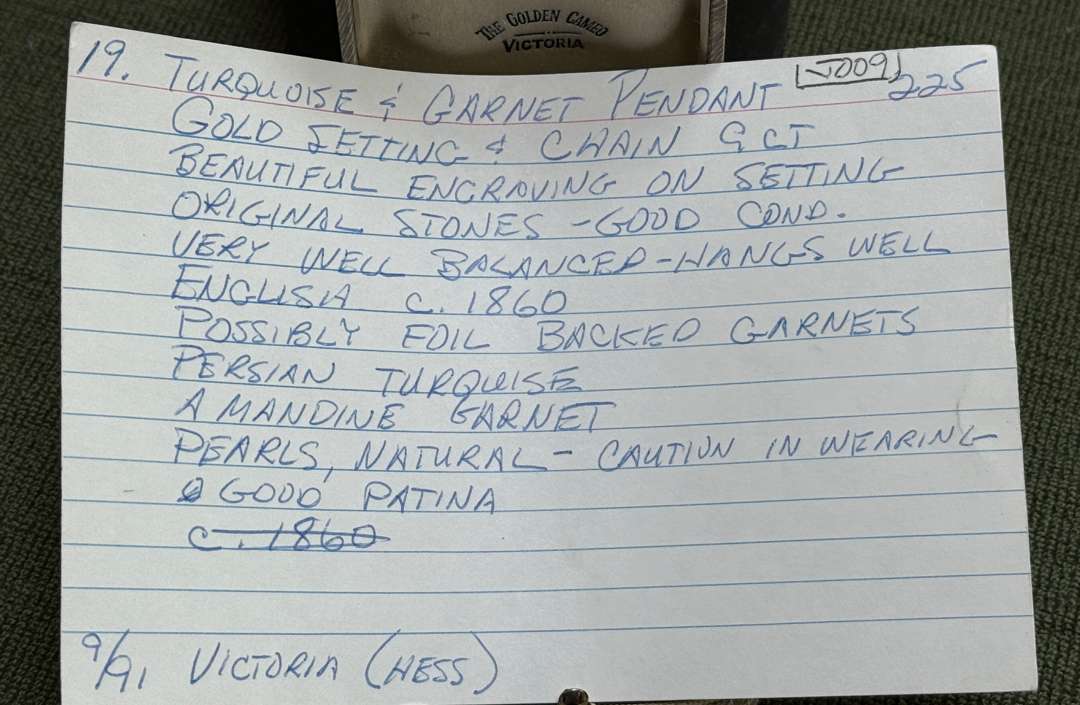 THE GOLDEN CAMEO
VICTORIA
19. TURQUOISE & GARNET PENDANT N009 225
GOLD SETTING & CHAIN 9 CT
BEAUTIFUL ENGRAVING ON SETTING
ORIGINAL STONES - GOOD COND.
VERY WELL BALANCED - HANGS WELL
ENGLISH c. 1860
POSSIBLY FOIL BACKED GARNETS
PERSIAN TURQUISE
AMANDINE GARNET
PEARLS, NATURAL - CAUTION IN WEARING
GOOD PATINA
c. 1860
9/91 VICTORIA (HESS)